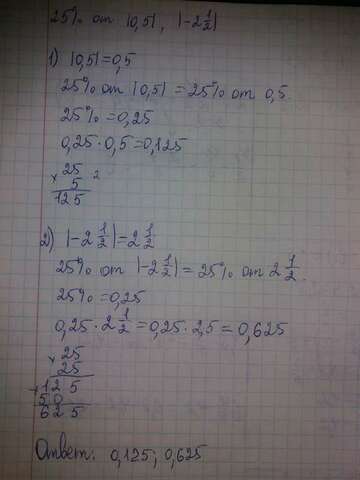 25% от |0,5|, |-2 1/2|
1) |0,5|=0,5
25% от |0,5| = 25% от 0,5.
25% = 0,25
0,25 · 0,5 = 0,125
× 25
5 2
125
2) |-2 1/2| = 2 1/2
25% от |-2 1/2| = 25% от 2 1/2.
25% = 0,25
0,25 · 2 1/2 = 0,25 · 2,5 = 0,625
× 25
25
+ 125
50
625
Ответ: 0,125; 0,625